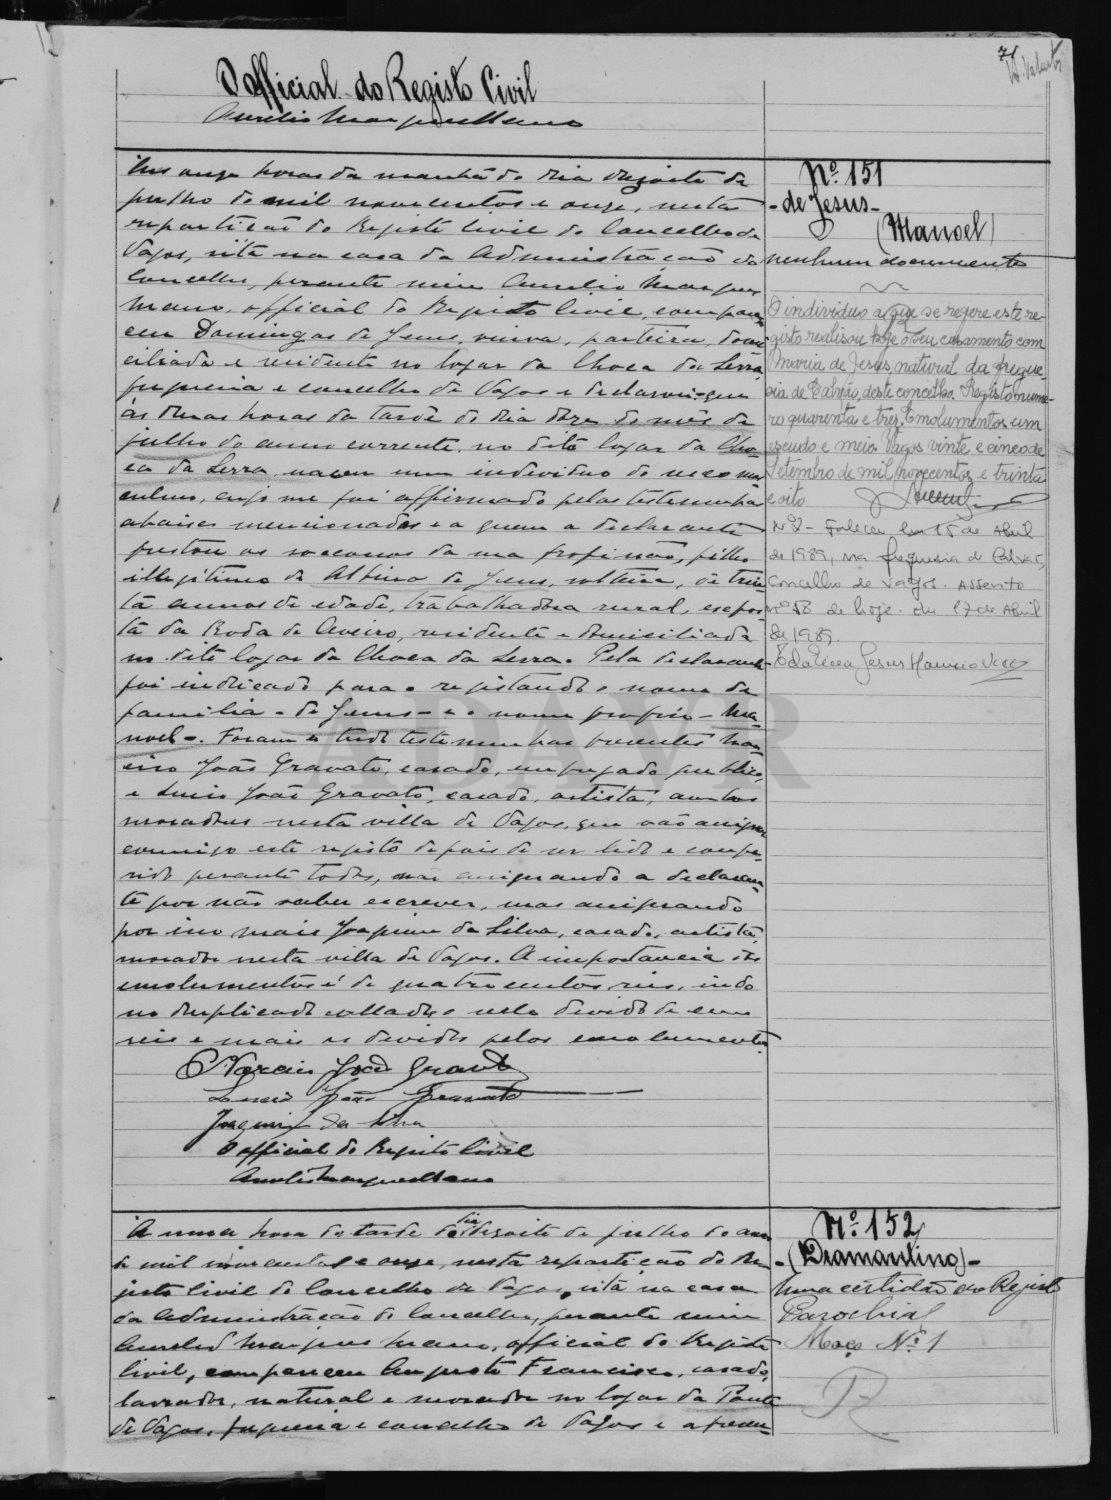 71
O official do Registo Civil
Aurelio Marques Mano
Nº 151
- de Jesus -
(Manoel)
nenhum documento
Às onze horas da manhã do dia dezoito de
julho de mil novecentos e onze, nesta
repartição do Registo Civil do Concelho de
Vagos, sita na casa da Administração do
Concelho, perante mim Aurelio Marques
Mano, official do Registo Civil, compare-
ceu Domingas de Jesus, viuva, parteira, domi-
ciliada e residente no logar da Choca da Serra,
freguesia e concelho de Vagos e declarou: que
ás duas horas da tarde do dia doze do mês de
julho do anno corrente, no dito logar da Cho-
ca da Serra nasceu um individuo do sexo mas-
culino, cujo me foi affirmado pelas testemunhas
abaixo mencionadas e a quem a declarante
prestou os soccorros da sua profissão, filho
illegitimo de Albina de Jesus, solteira, de trin-
ta annos de edade, trabalhadora rural, expos-
ta da Roda de Aveiro, residente e domiciliada
no dito logar da Choca da Serra. Pela declarante
foi indicado para o registando o nome de
familia - de Jesus - e o nome proprio - Ma-
noel -. Foram a tudo testemunhas presentes Nar-
ciso João Gravato, casado, empregado publico,
e Lucio João Gravato, casado, artista, ambos
moradores nesta villa de Vagos, que vão assignar
commigo este registo depois de ser lido e confe-
rido perante todos, não assignando a declaran-
te por não saber escrever, mas assignando
por isso mais Joaquim da Silva, casado, artista,
morador nesta villa de Vagos. A importancia dos
emolumentos é de quatrocentos reis, indo
no duplicado collado o sello devido de cem
reis e mais os devidos pelos emolumentos.
Narciso João Gravato
Lucio João Gravato
Joaquim da Silva
O official do Registo Civil
Aurelio Marques Mano
O individuo a que se refere este re-
gisto realisou hoje o seu casamento com
Maria de Jesus, natural da fregue-
sia de Calvão, deste concelho. Registo nume-
ro quarenta e tres. Emolumentos um
escudo e meio. Vagos vinte e cinco de
Setembro de mil novecentos e trinta
e oito
Nº 2 - Faleceu em 15 de Abril
de 1989, na freguesia de Calvão,
Concelho de Vagos. Assento
nº 58 de hoje. Em 17 de Abril
de 1989.
Nº 152
- (Diamantino) -
Uma certidão do Registo
Parochial
Maço Nº 1
A uma hora da tarde do dia dezoito de julho do anno
de mil novecentos e onze, nesta repartição do Re-
gisto Civil do Concelho de Vagos, sita na casa
da Administração do Concelho, perante mim
Aurelio Marques Mano, official do Registo
Civil, compareceu Augusto Francisco, casado,
lavrador, natural e morador no logar da Ponte
de Vagos, freguesia e concelho de Vagos e apresen-
ADAVR